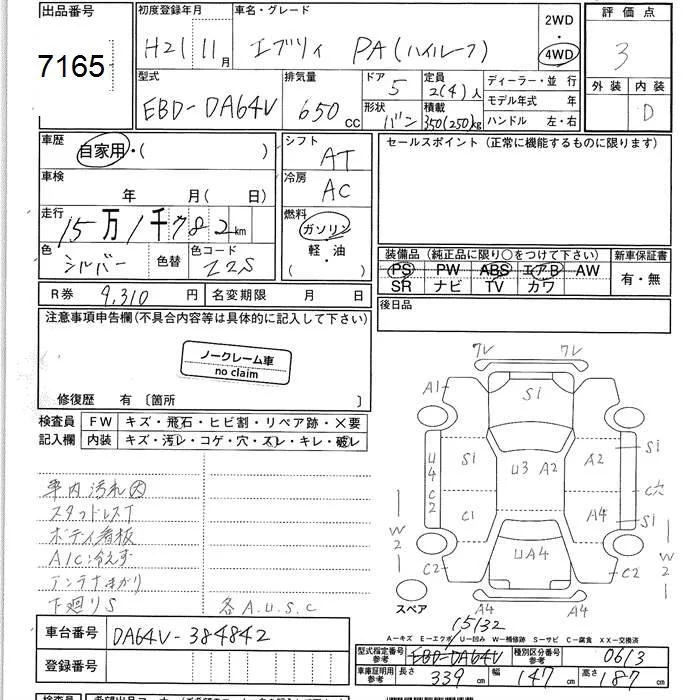 出品番号
7165
初度登録年月
H21年11月
車名・グレード
エブリィ PA(ハイルーフ)
2WD
・
4WD
評価点
3
外装 内装
D
型式
EBD-DA64V
排気量
650cc
ドア 5
形状 バン
定員 2(4)人
積載 350(250)kg
ディーラー・並行
モデル年式 年
ハンドル 左・右
車歴
自家用・( )
車検
年 月( 日)
走行
15万1千782km
色 シルバー 色替
色コード Z2S
シフト AT
冷房 AC
燃料
ガソリン
軽・油
( )
セールスポイント(正常に機能するものに限ります)
装備品(純正品に限り○をつけて下さい)
新車保証書
PS PW ABS エアB AW
SR ナビ TV カワ
有・無
R券 9,310円
名変期限 月 日
後日品
注意事項申告欄(不具合内容等は具体的に記入して下さい)
ノークレーム車
no claim
修復歴 有〔箇所 〕
検査員
記入欄
FW キズ・飛石・ヒビ割・リペア跡・×要
内装 キズ・汚レ・コゲ・穴・スレ・キレ・破レ
車内汚れ大
スタッドレスT
ボディ看板
A/C冷えず
アンテナまがり
下廻りS
各A.U.S.C
フレ フレ
A1
S1
S1
U3 A2
A2
S1
U4
C2
C1
A4
C穴
S1
W2
W2
C2
UA4
C2
A4
A4
スペア
A-キズ E-エクボ U-凹み W-補修跡 S-サビ C-腐食 XX-交換済
車台番号 DA64V-384842
登録番号
15132
型式指定番号
参考
EBD-DA64V
種別区分番号
参考
0613
車庫証明用
参考
長さ 339cm
幅 147cm
高さ 187cm
検査員